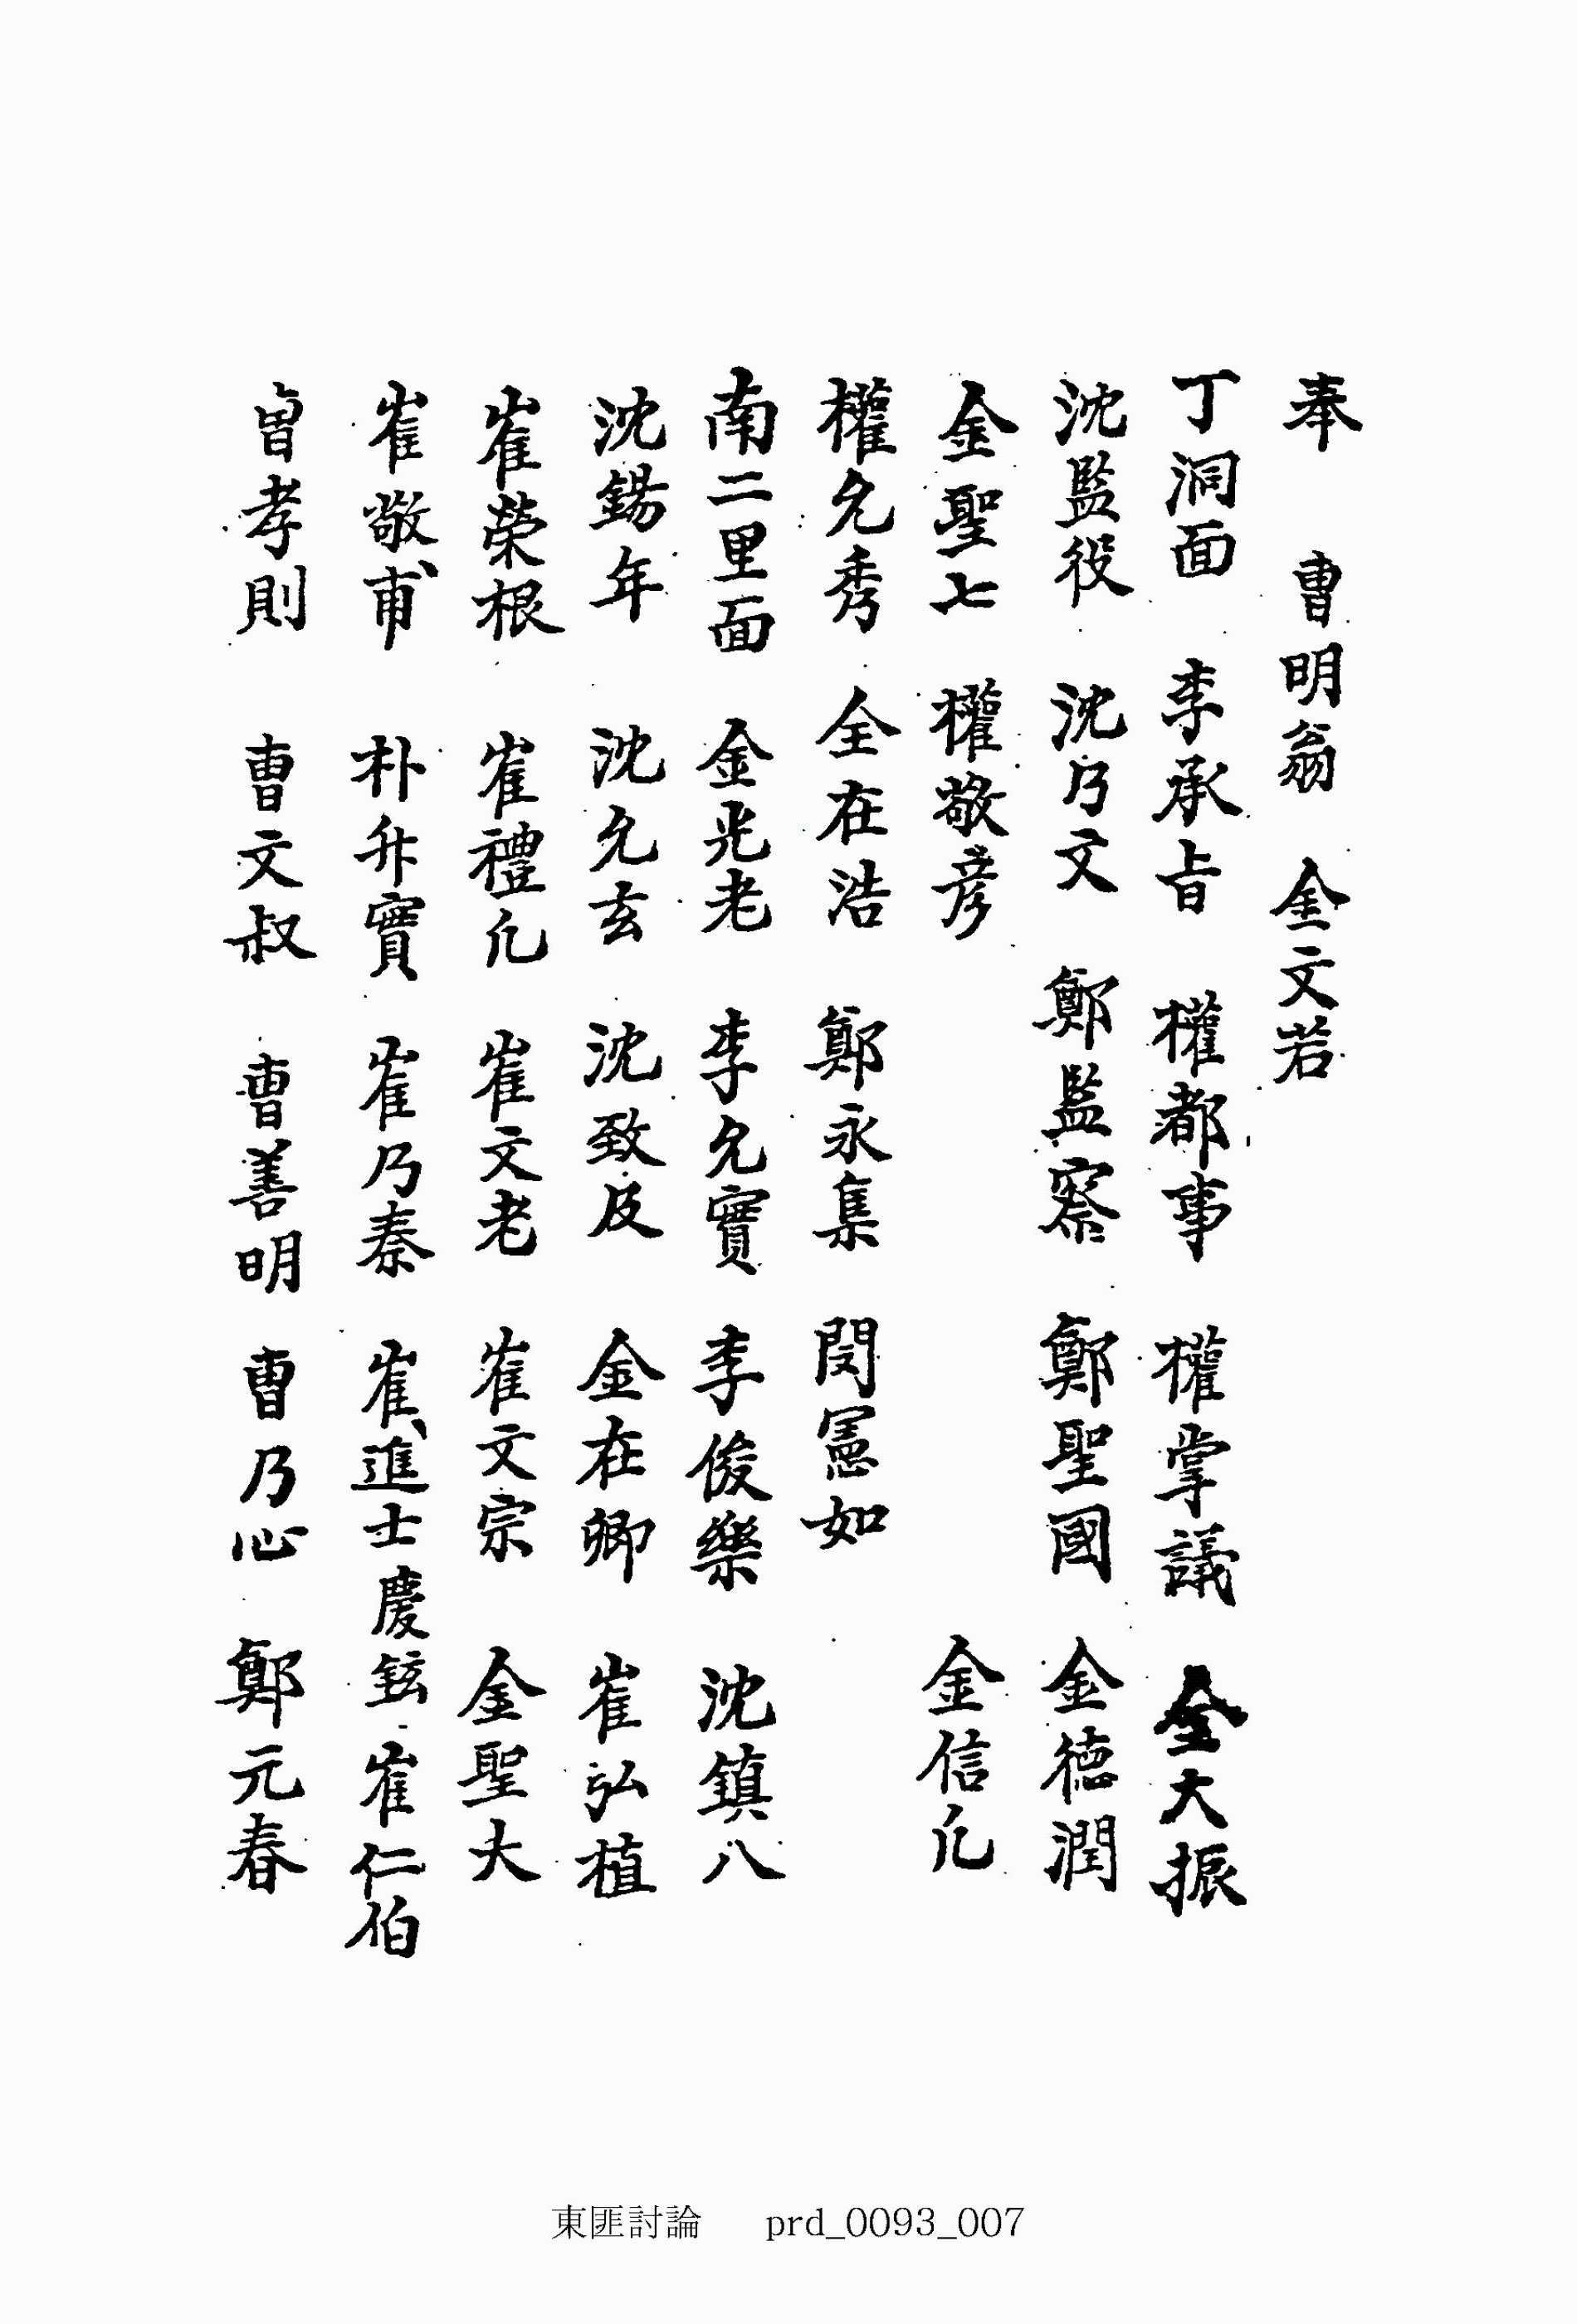 奉 曺明翁 金文若
丁洞面 李承旨 權都事 權掌議 全大振
沈監役 沈乃文 鄭監察 鄭聖國 金德潤
金聖七 權敬彦 金信凡
權允秀 全在浩 鄭永集 閔憲如
南二里面 金光老 李允實 李俊樂 沈鎮八
沈錫年 沈允玄 沈致友 金在卿 崔弘植
崔榮根 崔禮凡 崔文老 崔文宗 金聖大
崔敬甫 朴升實 崔乃秦 崔進士慶鉉 崔仁伯
曺孝則 曺文叔 曺善明 曺乃心 鄭元春
東匪討論 prd_0093_007